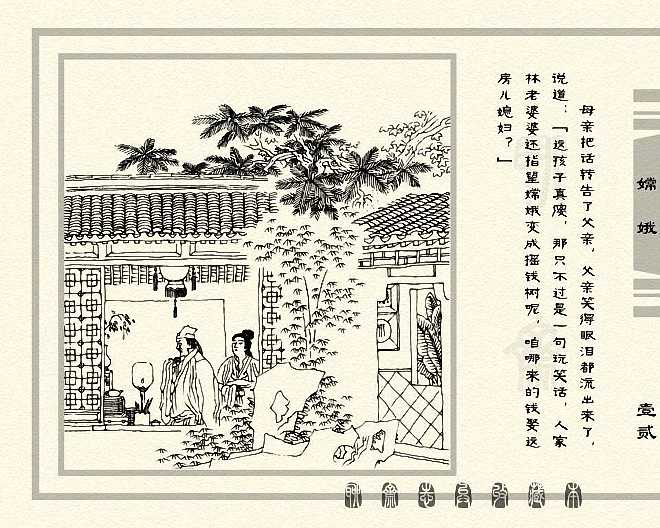 母亲把话转告了父亲，父亲笑得眼泪都流出来了，
说道：“这孩子真傻，那只不过是一句玩笑话，人家
林老婆婆还指望嫦娥变成摇钱树呢，咱哪来的钱娶这
房儿媳妇？”
嫦娥
壹贰